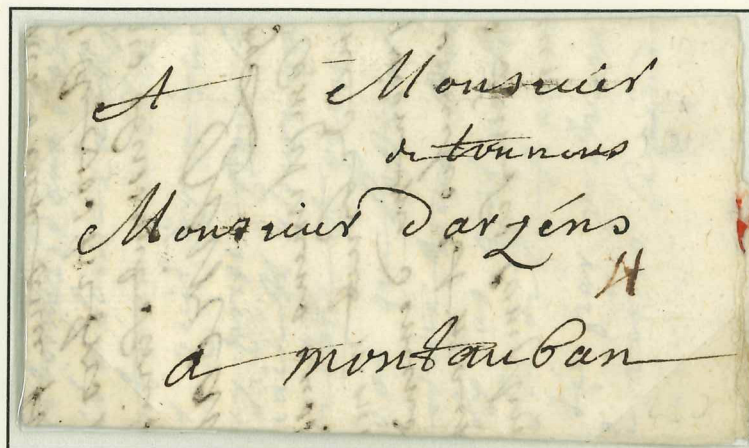 A Monsieur
de tournous
Monsieur Darzéns
4
a montauban